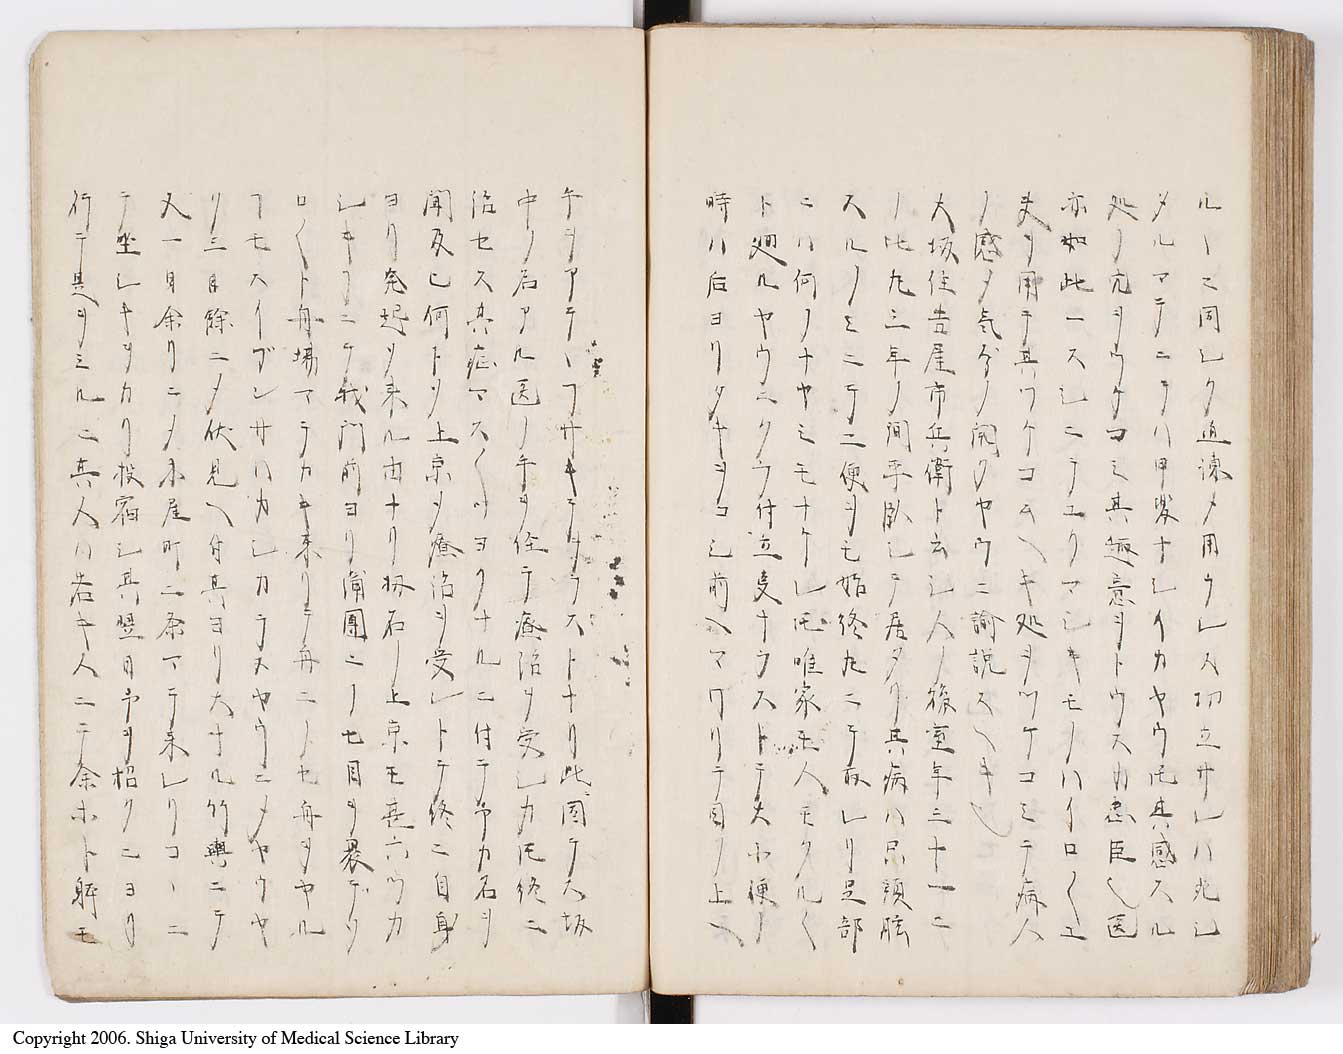 ルヿニ同シク追諌メ用ウレス切立サレハ死シ
タルマテニテハ甲斐ナシイカヤウ𪜈其感スル
処ノ穴ヲウケコミ其趣意ヲトウスカ忠臣也医
亦如此一スシニテユクマシキモノハイロ〱工
夫ヲ用テ其ツケコムヘキ処ヲツケコミテ病人
ノ感メ気ガノ開クヤウニ諭説スヘキ也
大坂住吉屋市兵衛ト云シ人ノ後室年三十一ニ
ノ比九三年ノ間平臥シテ居タリ其病ハ只頭眩
スルノミニテ二便ヲモ始終九ニテ取レリ足部
ニハ何ノナヤミモナケレ𪜈唯家モ人モクル〱
ト廻ルヤウニクウ付立叓ナラストテ大小便ノ
時ハ后ヨリタキヲコシ前ヘマワリテ目ノ上ヘ
午ヲアテヽフサキテヲラストナリ此固テ大坂
中ノ名アル医ノ手ヲ侄テ療治ヲ受シカ𪜈終ニ
治セス其症マス〱ツヨクナルニ付テ予カ名ヲ
聞及ヒ何トソ上京ヲ療治ヲ受レトテ終ニ自身
ヨリ発起ヲ来ル由ナリ扨右ノ上京モ甚六ツカ
シキリニテ我門前ヨリ蒲團ニノセ目ヲ褁デソ
ロ〱ト舟場マテカキ来リテ舟ニノセ舟ヲヤル
ヿモスイブンサハカシカラヌヤウニメヤウヤ
リ三日餘ニメ伏見ヘ付其ヨリ大ナル竹輿ニテ
又一日余リニメ木屋町二条マテ来レリコヽニ
テ坐シキヲカリ投宿シ其翌日予ヲ招クニヨリ
行テ是ヲミルニ其人ハ若キ人ニテ余ホト躰モ
Copyright 2006. Shiga University of Medical Science Library